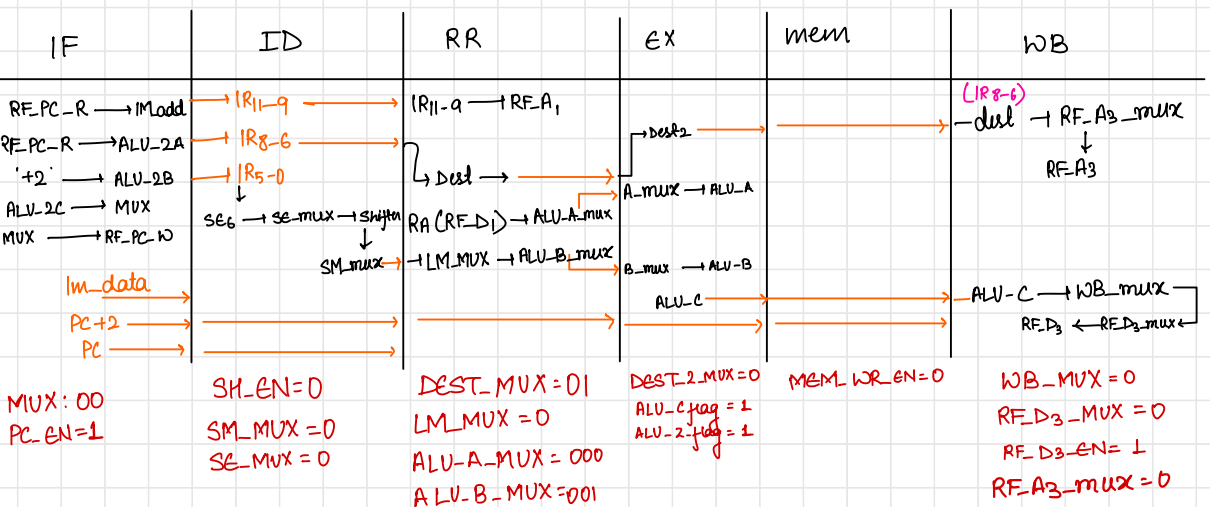 IF ID RR EX mem WB
RF_PC_R → IMadd
RF_PC_R → ALU_2A
'+2' → ALU_2B
ALU_2C → MUX
MUX → RF_PC_W
Im_data
PC+2 →
PC →
MUX: 00
PC_EN=1
→ IR11-9 →
→ IR8-6 →
→ IR5-0
↓
SE6 → SE_mux → Shifter
↓
SM_mux →
SH_EN=0
SM_MUX=0
SE_MUX=0
IR11-9 → RF_A1
Dest →
RA(RF_D1) → ALU_A_mux
→ LM_MUX → ALU_B_mux
DEST_MUX=01
LM_MUX=0
ALU-A_MUX=000
ALU-B_MUX=001
Dest2
A_mux → ALU_A
B_mux → ALU-B
ALU_C
DEST_2_MUX=0
ALU_Cflag=1
ALU-2-flag=1
MEM_WR_EN=0
(IR8-6)
dest → RF_A3_mux
↓
RF_A3
ALU-C → WB_mux
RF_D3 ← RF_D3_mux
WB_MUX=0
RF_D3_MUX=0
RF_D3-EN=1
RF_A3_mux=0